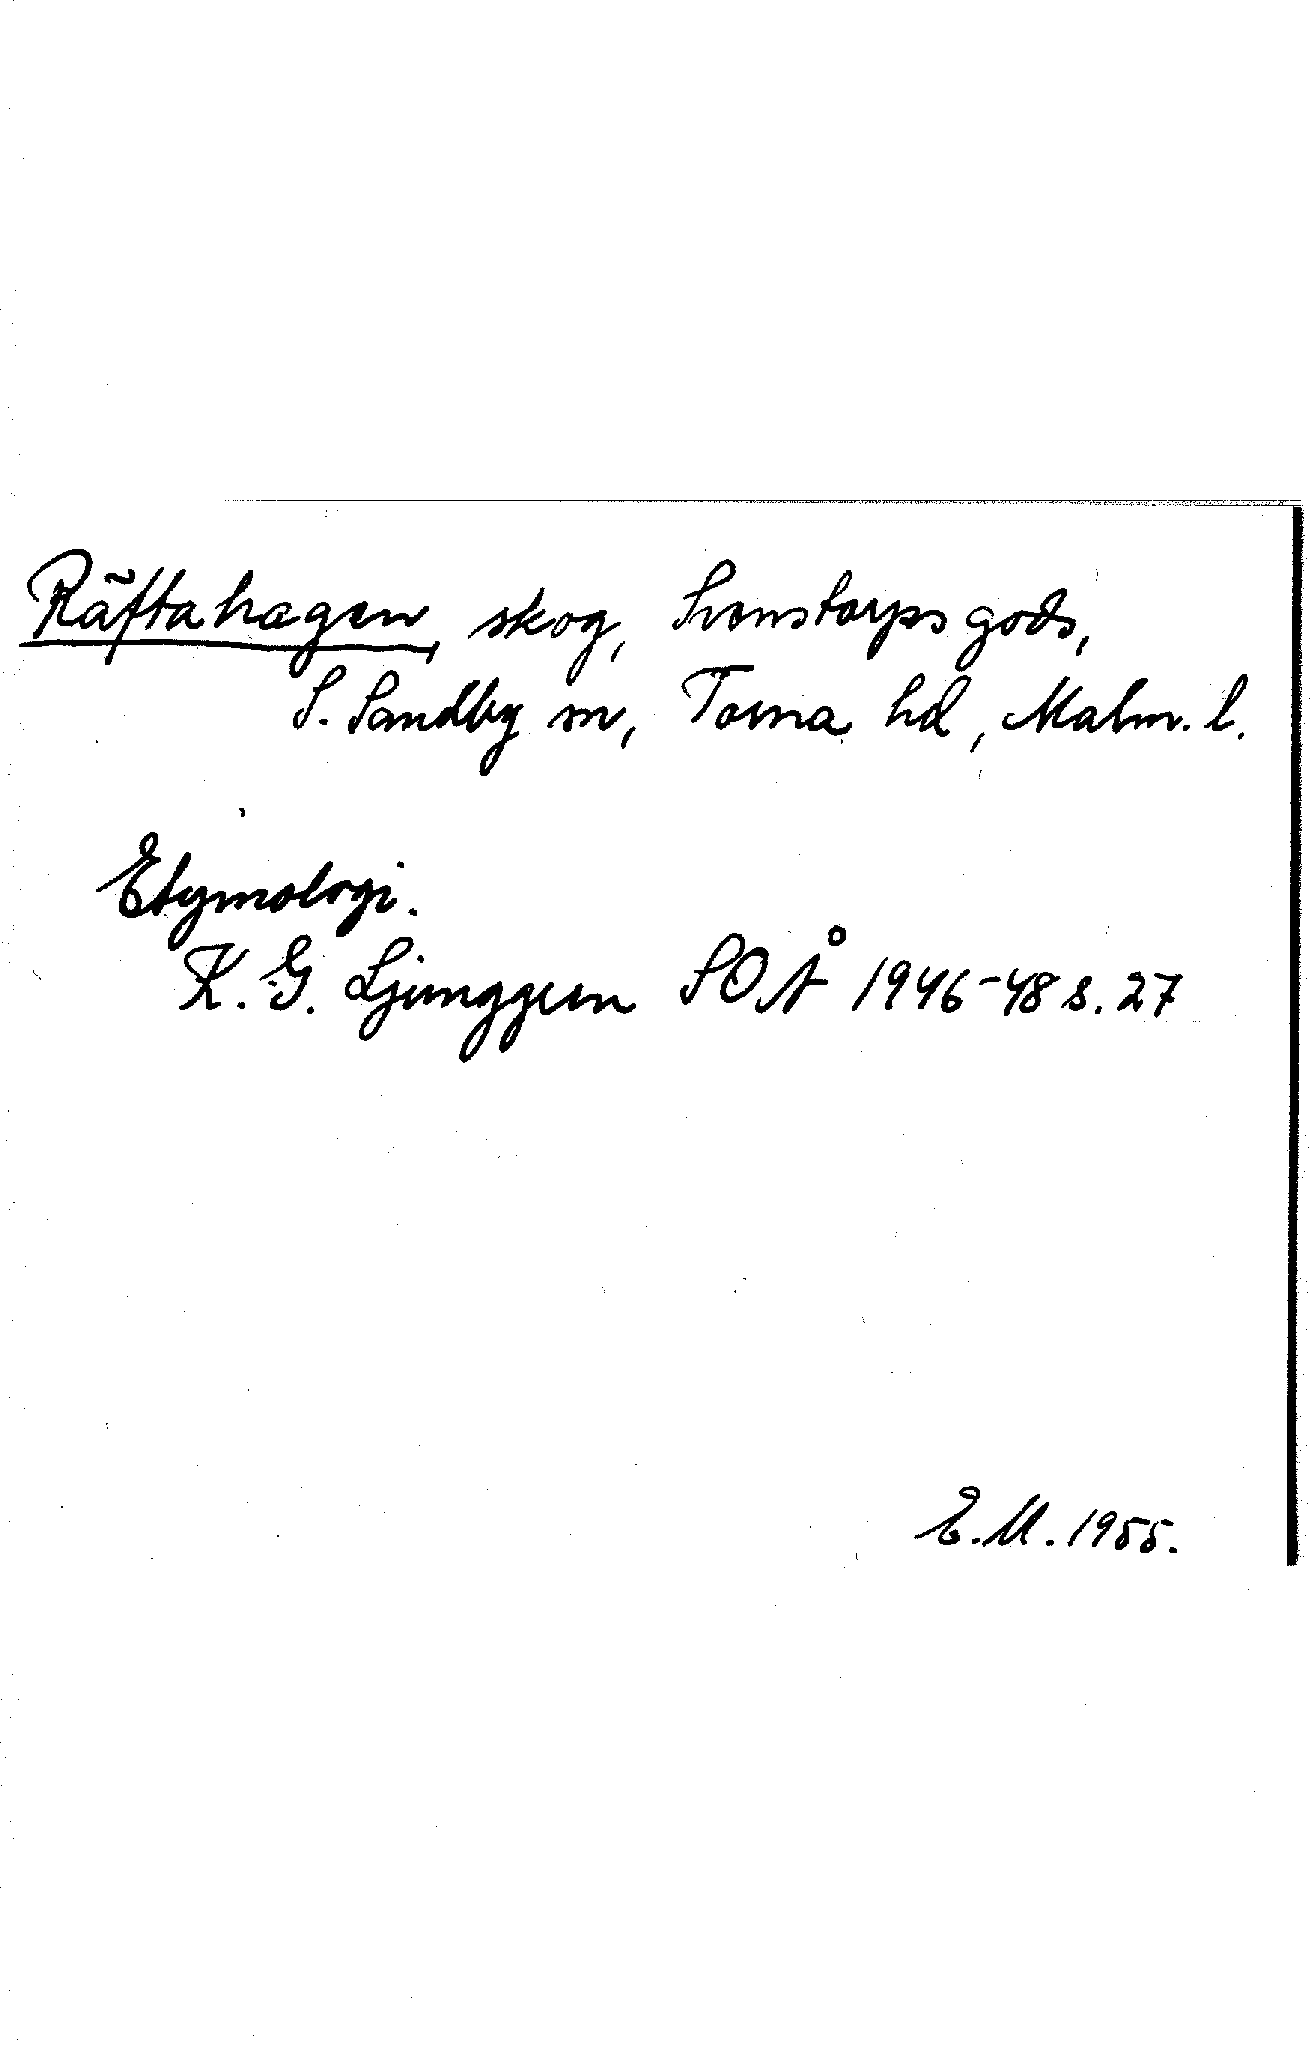 Räftahagen, skog, Svenstorps gods,
S. Sandby sn, Torna hd, Malm. l.
Etymologi.
K. G. Ljunggren SOÅ 1946-48 s. 27
E.M. 1955.